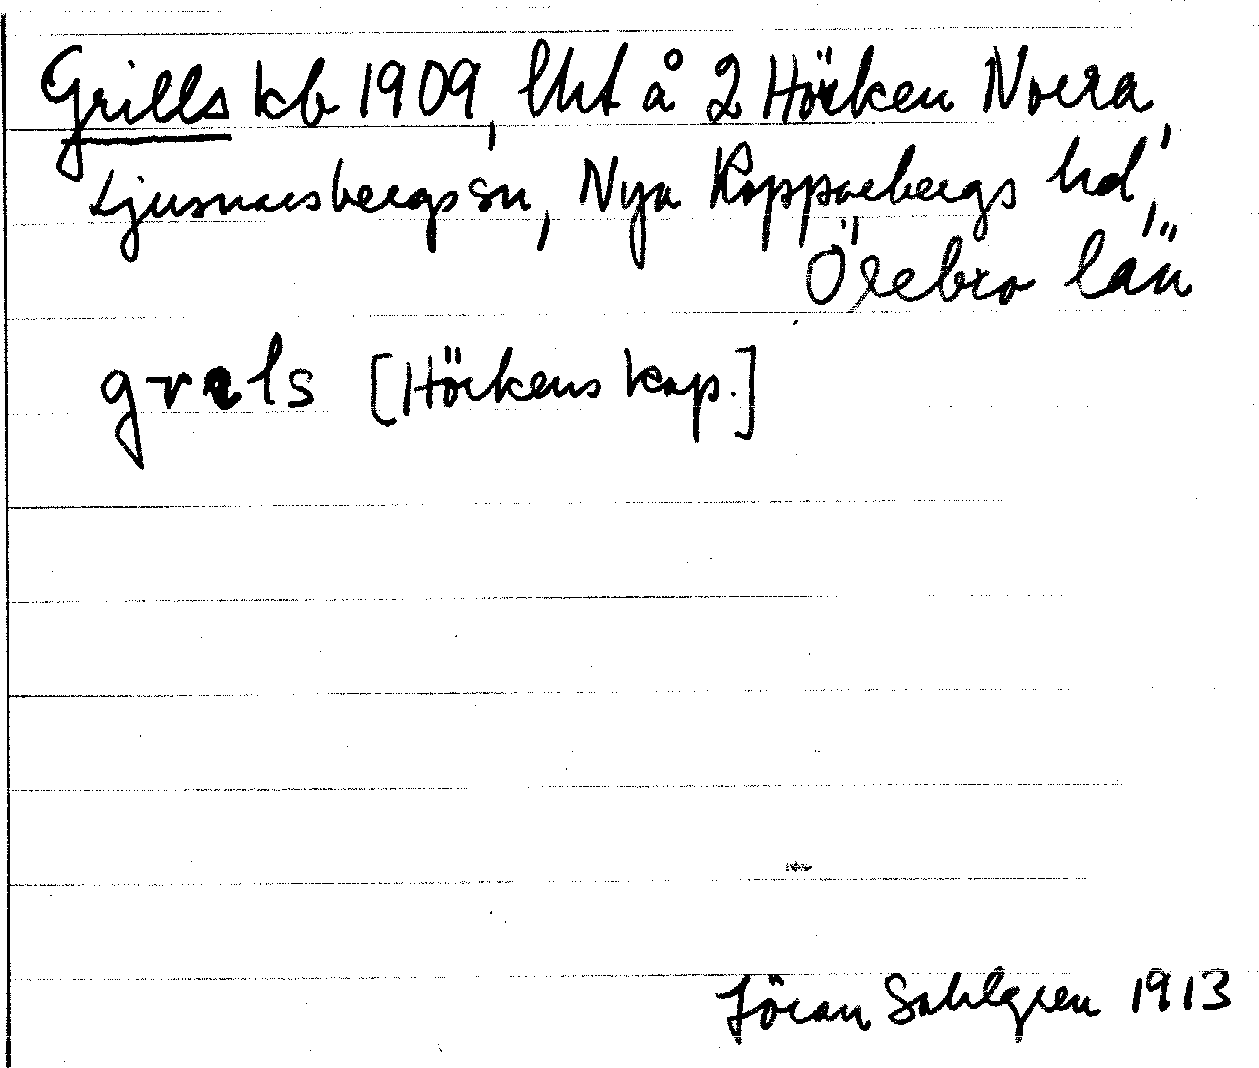 Grills kb 1909, lht å 2 Hörken Norra,
Ljusnarsbergs sn, Nya Kopparbergs hd,
Örebro län
grels [Hörkens kap.]
Jöran Sahlgren 1913